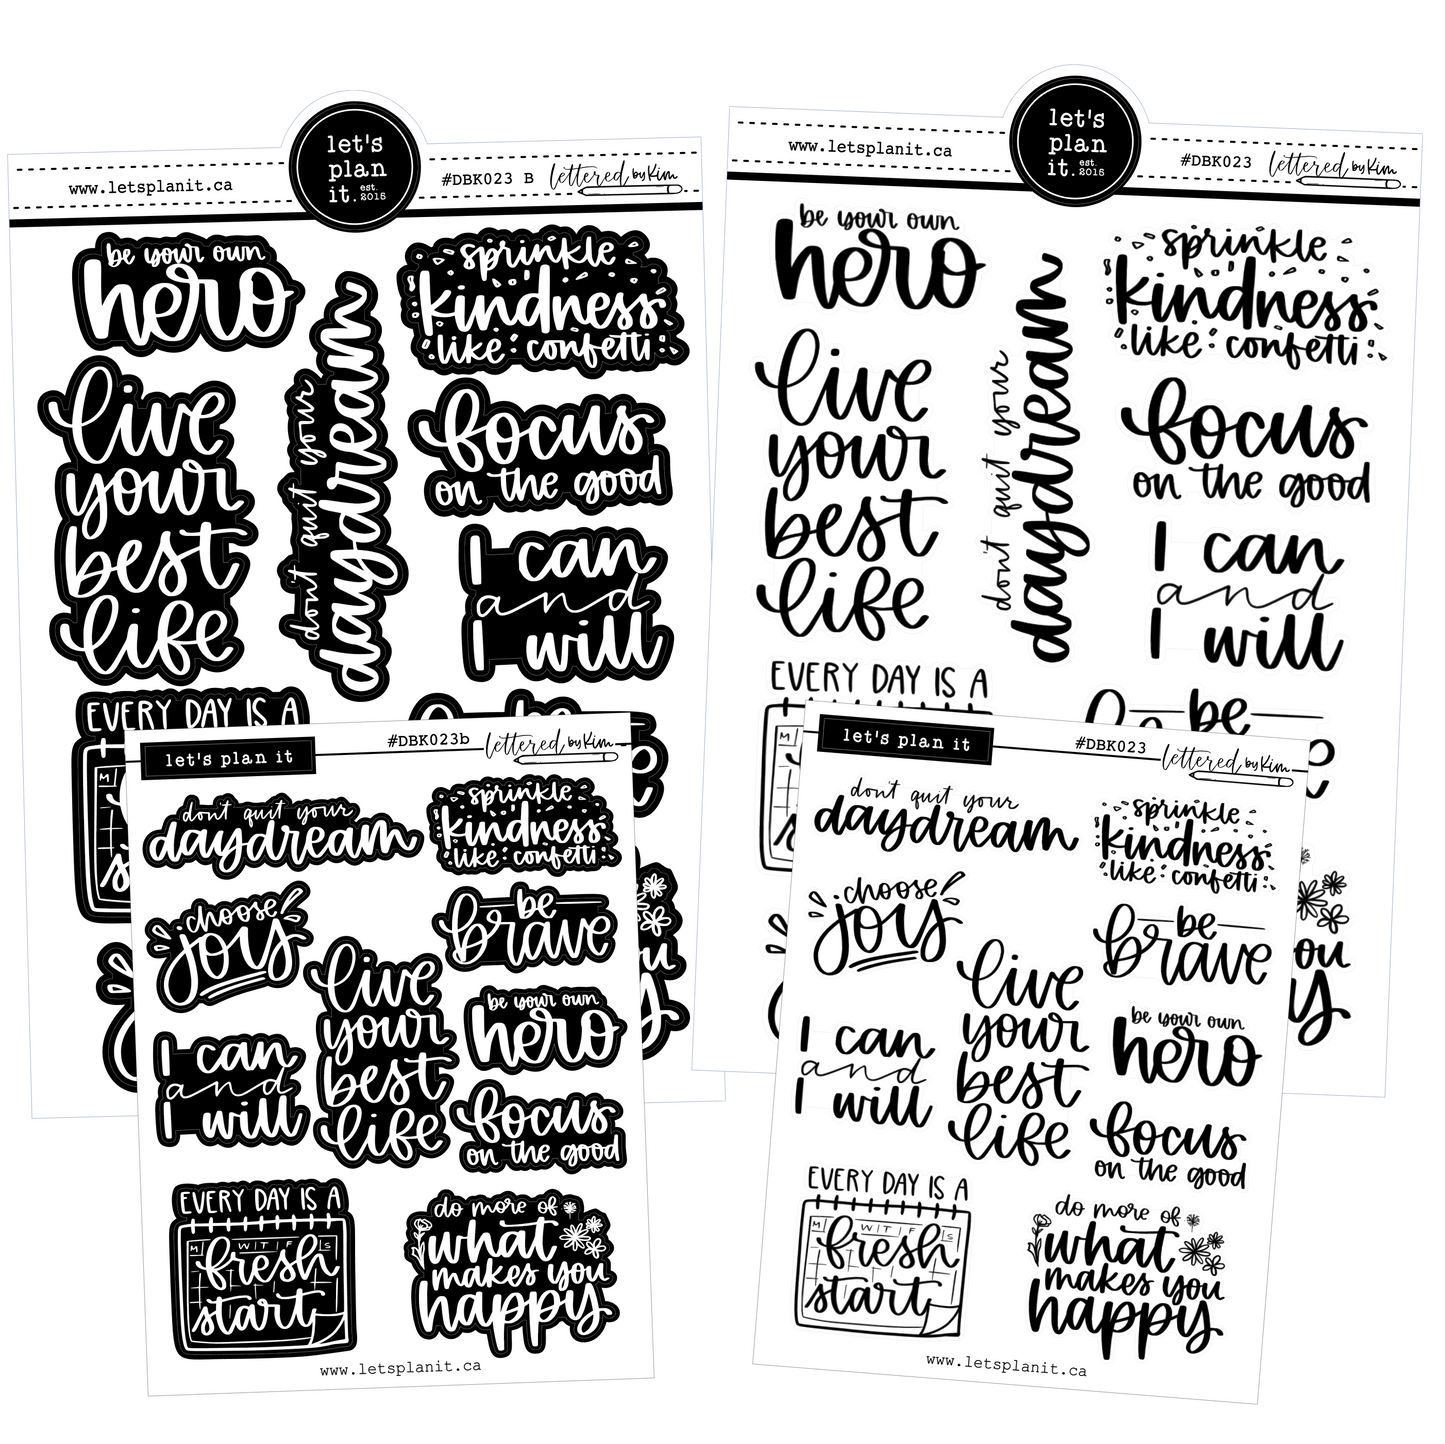 let's
plan
it.
est.
2015
www.letsplanit.ca
#DBK023 B
lettered by Kim
be your own
hero
sprinkle
kindness
like confetti
don't quit your
daydream
live
your
best
life
focus
on the good
I can
and
I will
EVERY DAY IS A
M
be
let's
plan
it.
est.
2015
www.letsplanit.ca
#DBK023
lettered by Kim
be your own
hero
sprinkle
kindness
like confetti
don't quit your
daydream
live
your
best
life
focus
on the good
I can
and
I will
EVERY DAY IS A
M
be
let's plan it
#DBK023b
lettered by Kim
don't quit your
daydream
sprinkle
kindness
like confetti
choose
joy
be
brave
live
your
best
life
be your own
hero
I can
and
I will
focus
on the good
EVERY DAY IS A
M W T F S
fresh
start
do more of
what
makes you
happy
www.letsplanit.ca
let's plan it
#DBK023
lettered by Kim
don't quit your
daydream
sprinkle
kindness
like confetti
choose
joy
be
brave
live
your
best
life
be your own
hero
I can
and
I will
focus
on the good
EVERY DAY IS A
M W T F S
fresh
start
do more of
what
makes you
happy
www.letsplanit.ca